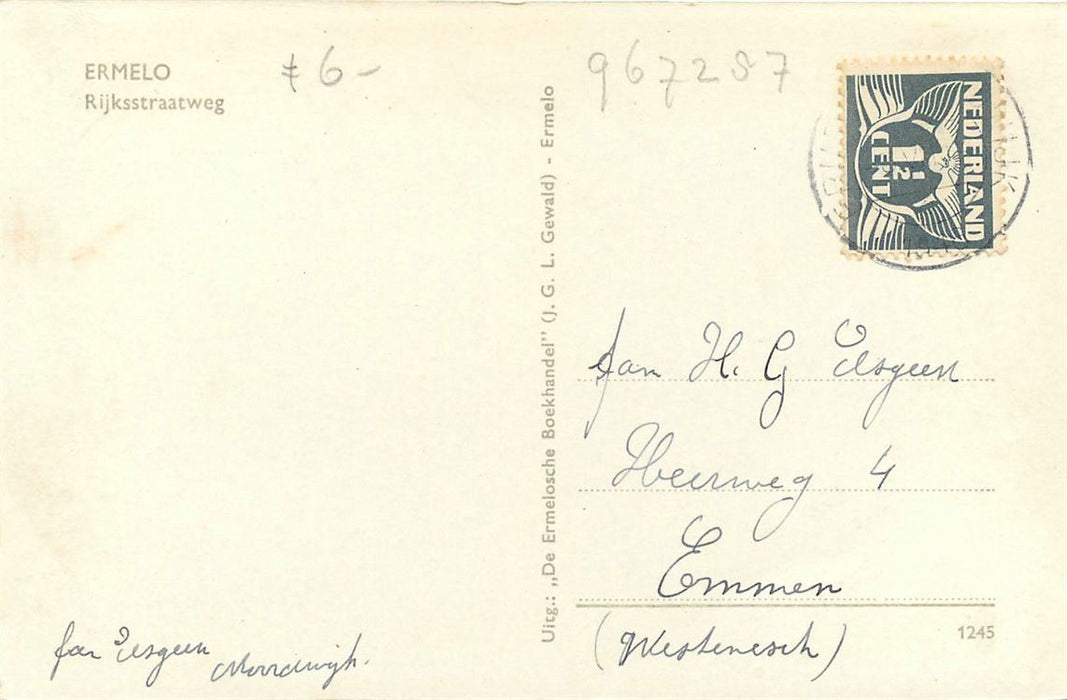 ERMELO
Rijksstraatweg
ƒ 6-
967287
NEDERLAND
1½
CENT
Uitg.: „De Ermelosche Boekhandel" (J. G. L. Gewald) - Ermelo
fam H. G Eisgeen
Heerweg 4
Emmen
(Westenesch)
1245
fam Eisgeen
Noordwijk.